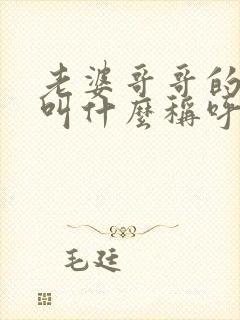 老婆哥哥的
叫什麼稱呼
毛廷